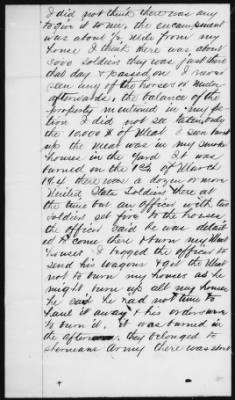 I did not think there was any
to see it to me, the encampment
was about ½ Mile from my
house I think there was about
3000 soldiers they was just there
that day & passed on I never
seen any of the horses or Mules
afterwards, the balance of the
property mentioned in my peti
tion I did not see taken but
the 10.000 # of Meat I seen burnt
up the meat was in my smoke
houses in the yard It was
burned on the 1st of March
1864 there was a dozen or more
United State Soldiers there at
the time but an officer with two
soldiers set fire to the houses
the officer said he was detail
ed to come there & burn my Meat
I begged the officer to
send his wagons & get the Meat
not to burn my houses as he
might burn up all my houses
he said he had not time to
haul it away & his orders were
to burn it. it was burned in
the afternoon, they belonged to
Shermans Army there was about